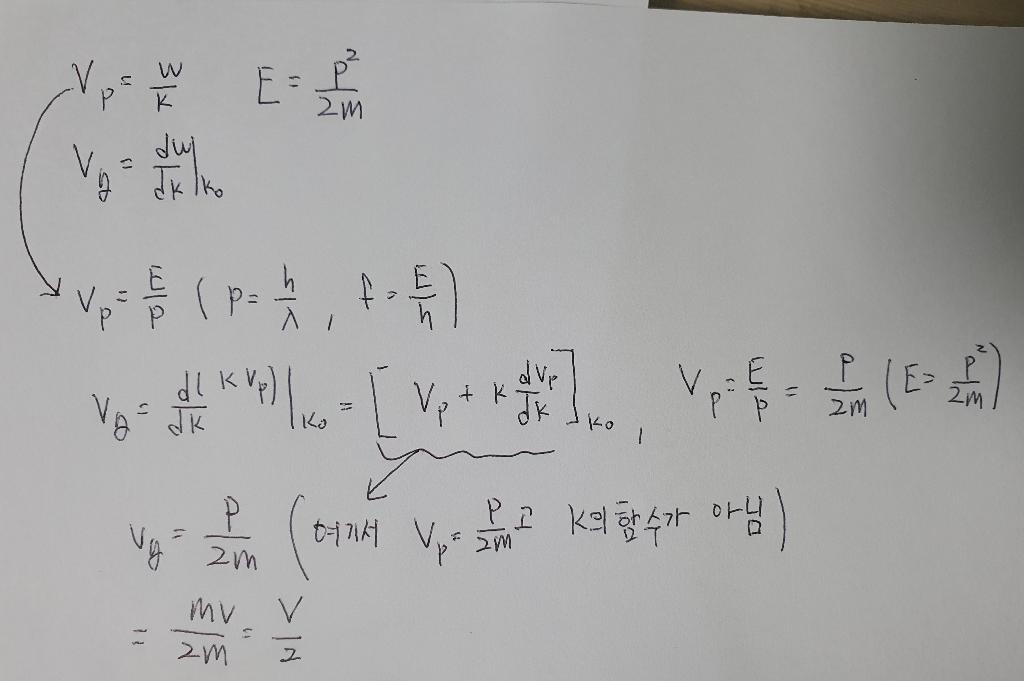 Vp = w/k    E = p²/2m
Vg = dw/dk |k₀
Vp = E/p ( p = h/λ , f = E/h )
Vg = d(k Vp)/dk |k₀ = [ Vp + k dVp/dk ]k₀ , Vp = E/p = p/2m ( E = p²/2m )
Vg = p/2m ( 여기서 Vp = p/2m 고 k의 함수가 아님 )
= mv/2m = v/2